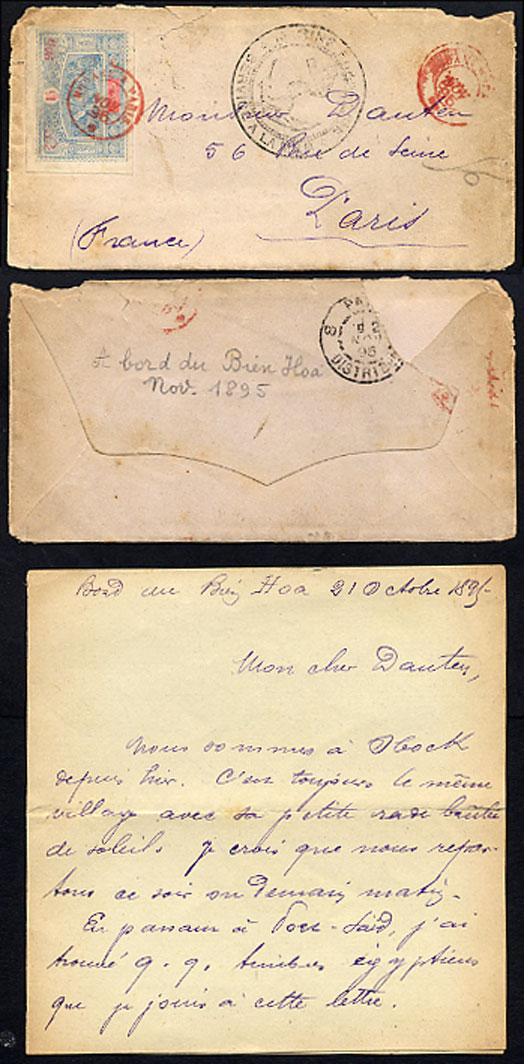 Monsieur Dauten
56 Rue de Seine
Paris
(France)
PARIS
DISTRIB
A bord du Bien Hoa
Nov. 1895
Bord du Bien Hoa 21 Octobre 1895
Mon cher Dauten,
Nous sommes à Obock
depuis hier. C'est toujours le même
village avec sa petite rade
de soleil. Je crois que nous repar-
tons ce soir ou demain matin.
En passant à Port-Saïd, j'ai
trouvé q. q. timbres égyptiens
que je joins à cette lettre.